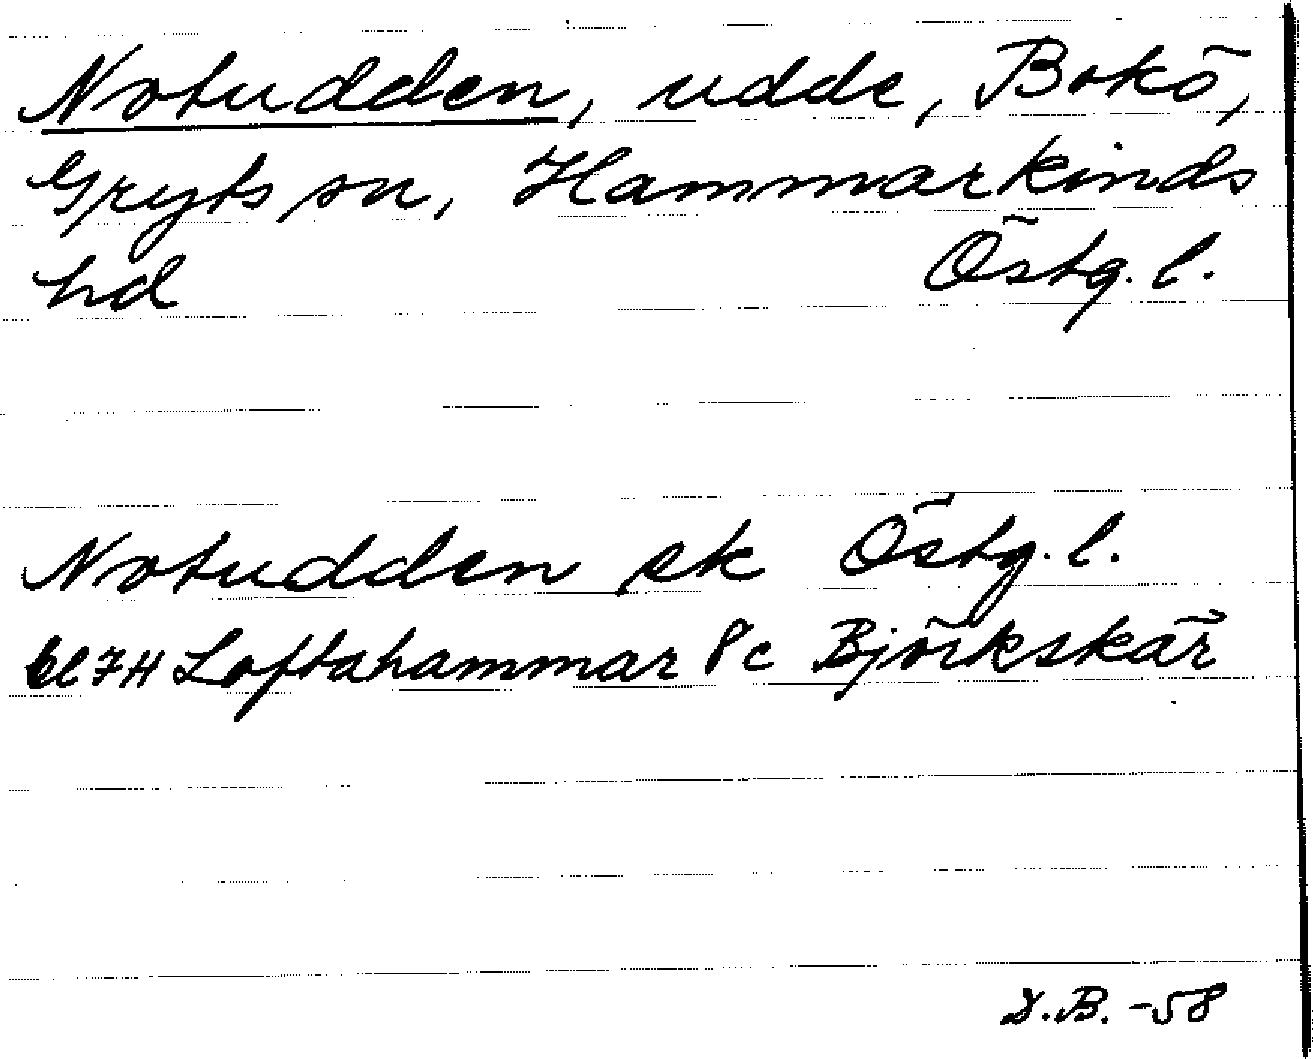 Notudden, udde, Bokö,
Gryts sn, Hammarkinds
hd Östg. l.
Notudden ek Östg. l.
bl 7H Loftahammar 8c Björkskär
D.B. -58